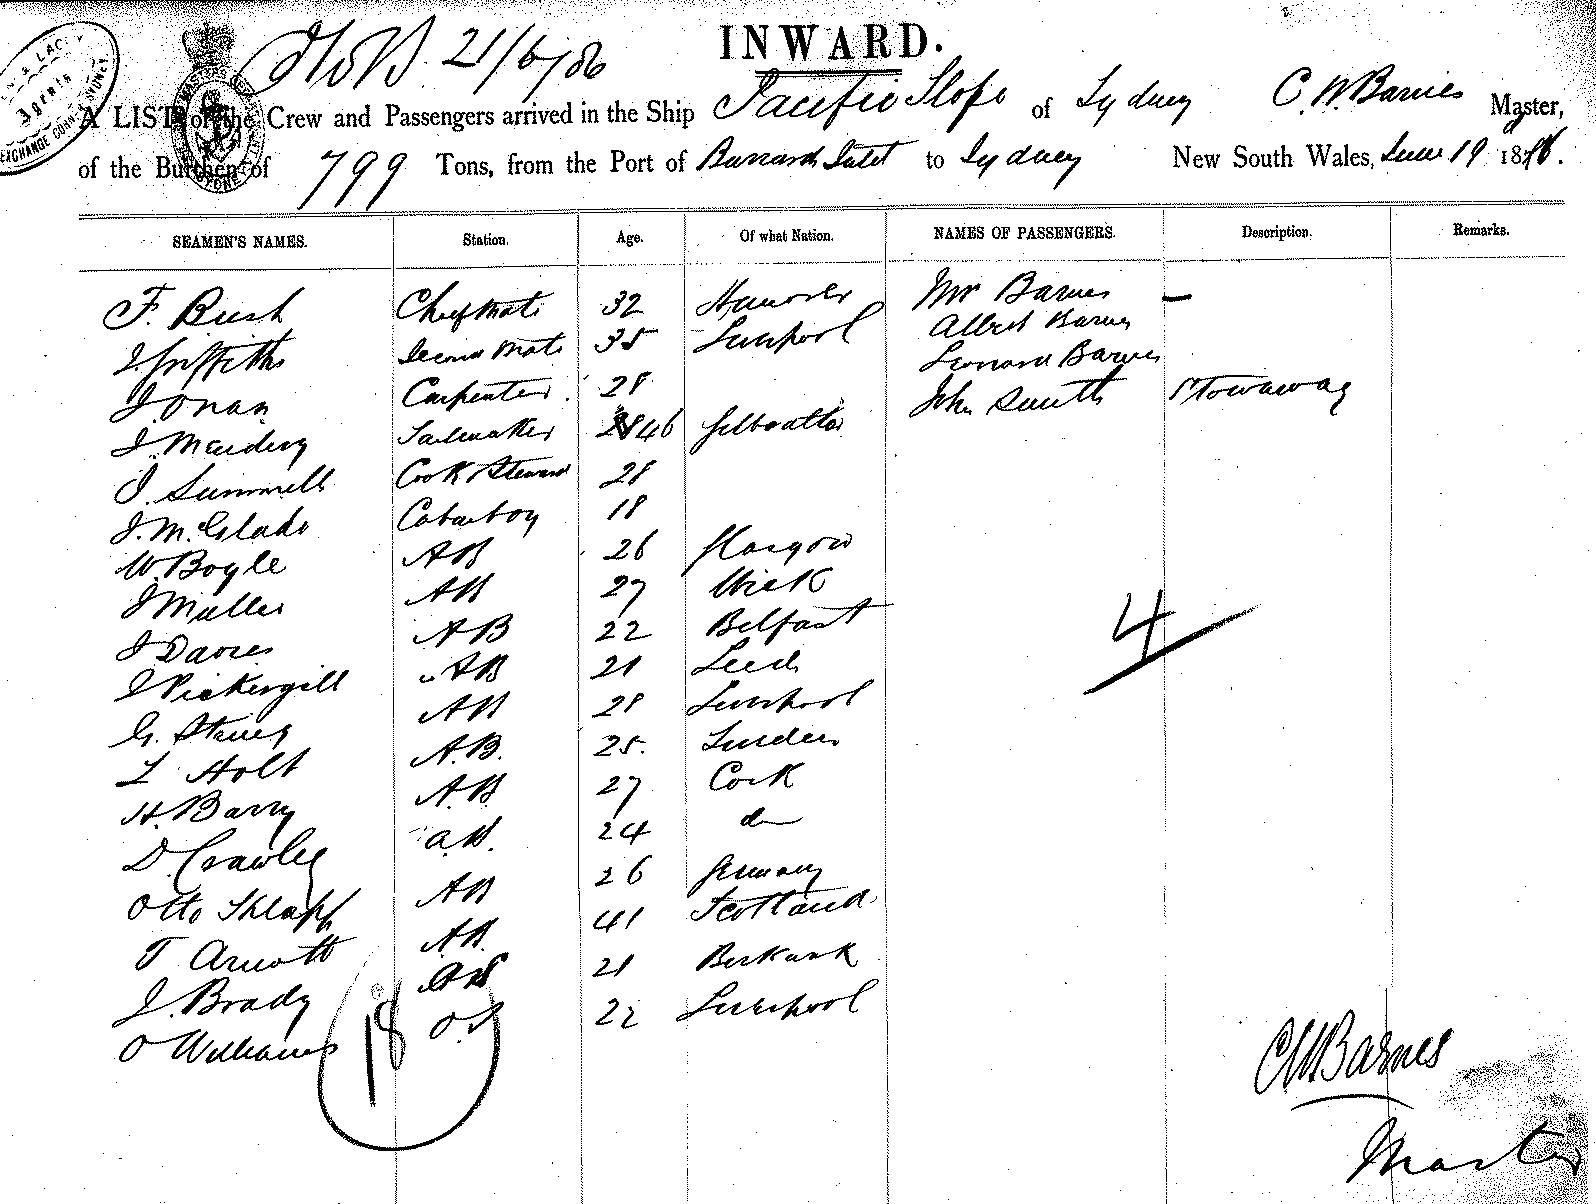 21/6/86
INWARD.
Agents
EXCHANGE CORNER SYDNEY
A LIST of the Crew and Passengers arrived in the Ship Pacific Slope of Sydney C. W. Barnes Master,
of the Burthen of 799 Tons, from the Port of Burrard Inlet to Sydney New South Wales, June 19 1886.
SEAMEN'S NAMES. Station. Age. Of what Nation. NAMES OF PASSENGERS. Description. Remarks.
F. Bush Chief Mate 32 Hanover Mrs Barnes —
J. Griffiths Second Mate 35 Liverpool Albert Barnes
J. Onan Carpenter 28 Leonard Barnes
Sailmaker 46 Gibraltar John Smith Stowaway
J. Summells Cook & Steward 28
J. McGlade Cabinboy 18
W. Boyle AB 26 Glasgow
J Muller AB 27 Wick
J Davies AB 22 Belfast
J Pickersgill AB 21 Leeds
G. AB 28 Liverpool
L Holt A.B. 25. London
H. Barry A.B 27 Cork
D. Crawley A.B. 24 do
Otto AB 26 Germany
T Arnott AB. 41 Scotland
J. Brady 21
O Williams O.S 22 Liverpool
18
4
CWBarnes
Master